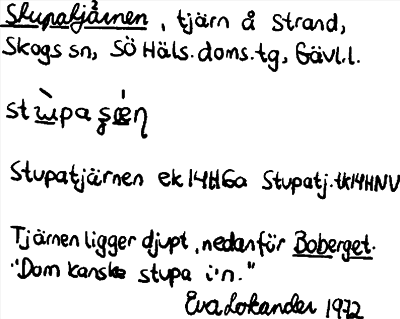 Stupatjärnen, tjärn å Strand,
Skogs sn, SÖ Häls. doms. tg, Gävl.l.
Stupatjärnen ek 14H6a Stupatj. tk14HNV
Tjärnen ligger djupt, nedanför Boberget.
"Dom kanske stupa i'n."
Eva Lokander 1972